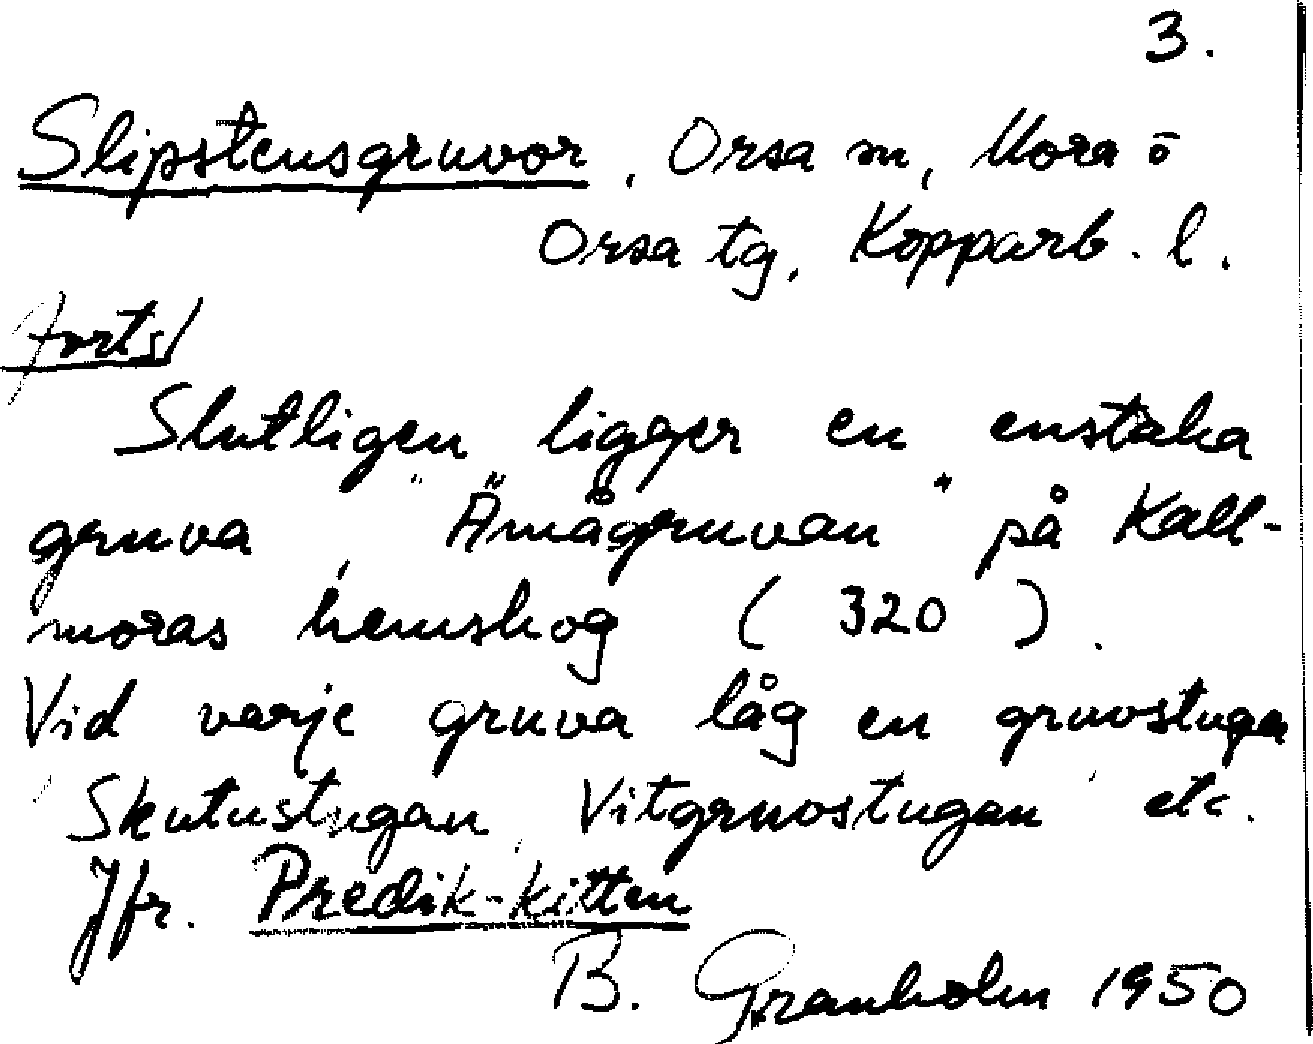 3.
Slipstensgruvor, Orsa sn, Mora o
Orsa tg, Kopparb. l.
Forts/
Slutligen ligger en enstaka
gruva, "Ämågruvan" på Kall-
moras hemskog (320).
Vid varje gruva låg en gruvstuga
'Skutustugan, Vitgruvstugan' etc.
Jfr. Predik-kitten
B. Granholm 1950